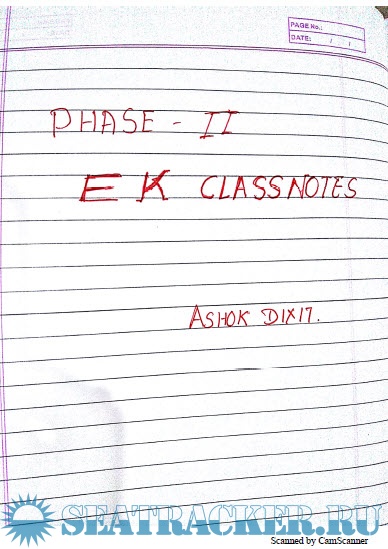 PAGE No.:
DATE: / /
PHASE - II
E K CLASSNOTES
ASHOK DIXIT.
SEATRACKER.RU
Scanned by CamScanner